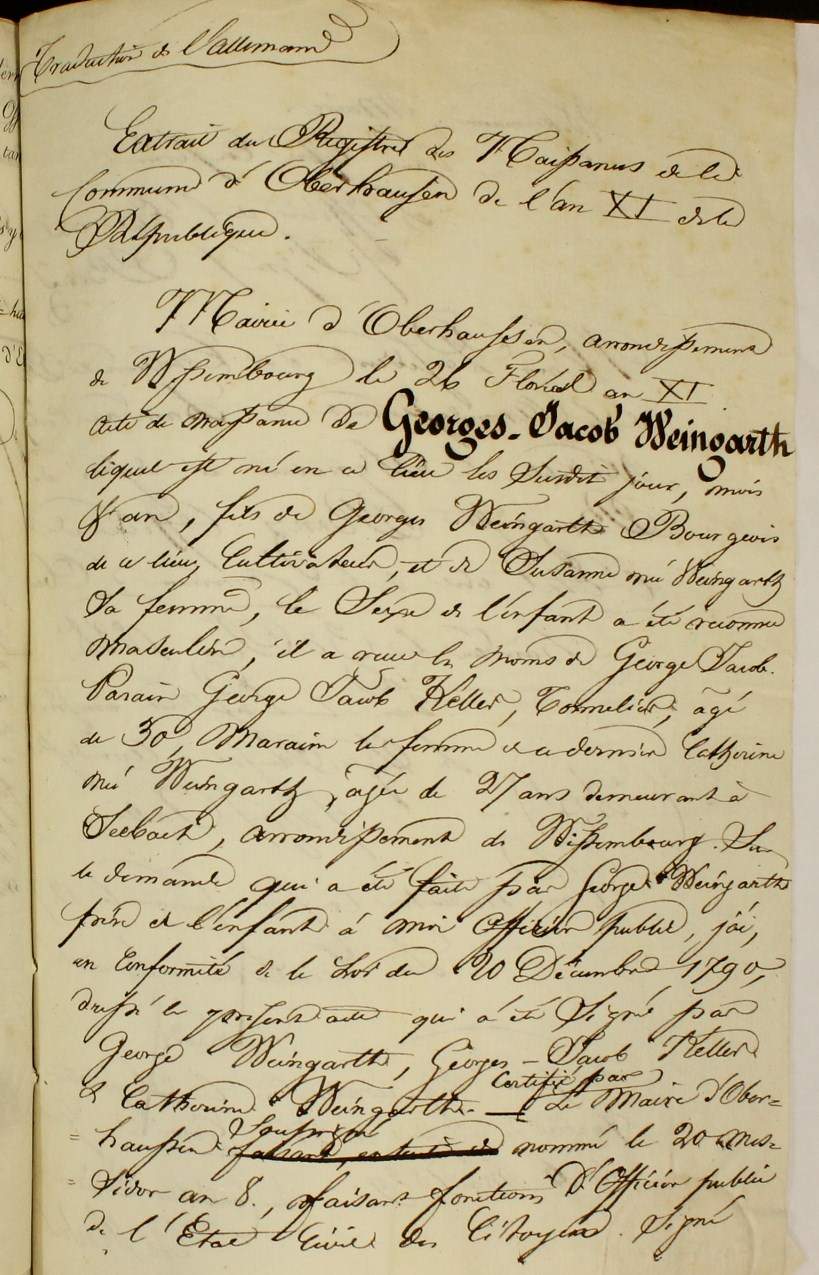 Traduction de l'allemand
Extrait du Registre des Naissances de la
Commune d'Oberhausen de l'an XI de la
République.
Mairie d'Oberhausen, arrondissement
de Wissembourg le 26 Floréal an XI
Acte de naissance de Georges-Jacob Weingarth
lequel est né en ce lieu les Susdit jour, mois
& an, fils de Georges Weingarth Bourgeois
de ce lieu, Cultivateur, et de Susanne née Weingarth
Sa femme, le Sexe de l'enfant a été reconnu
masculin, il a reçu les noms de George Jacob.
Parain George Jacob Keller, Tonnelier, âgé
de 30, Maraine la femme de ce dernier Catherine
née Weingarth, âgée de 27 ans demeurant à
Seebach, arrondissement de Wissembourg. Sur
la demande qui a été faite par George Weingarth
père de l'enfant à moi Officier public, j'ai,
en Conformité de la Loi du 20 Décembre 1790,
dressé le présent acte qui a été Signé par
George Weingarth, Georges-Jacob Keller
& Catherine Weingarth. — Certifié par Le Maire d'Ober=
=haussen Soussigné nommé le 20 Mes=
=sidor an 8., faisant fonctions D'Officier public
de l'Etat Civil des Citoyens. Signé